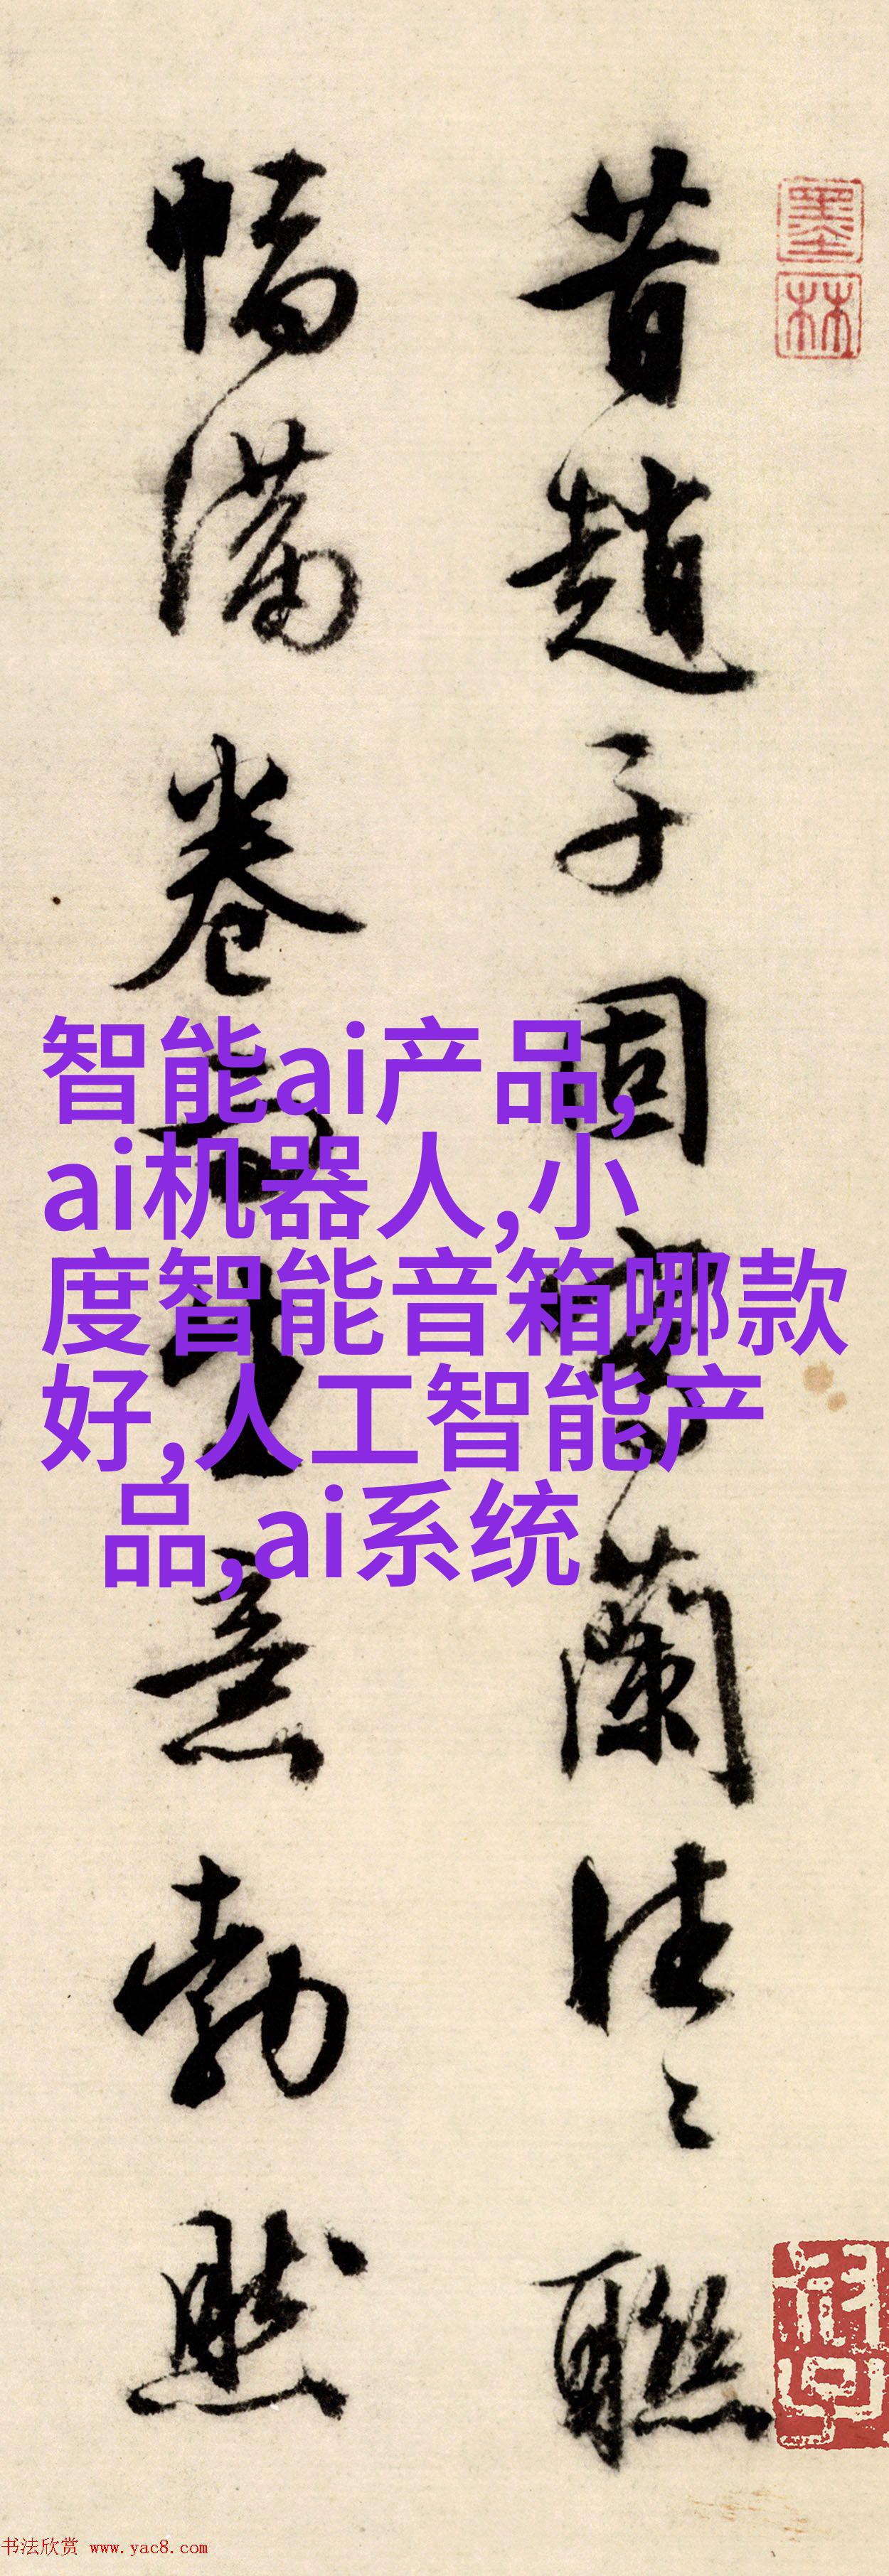 昔趙子固寫蘭往々聯
幅滿卷而生意勃然
墨林
智能ai产品,
ai机器人,小
度智能音箱哪款
好,人工智能产
品,ai系统
书法欣赏 www.yac8.com